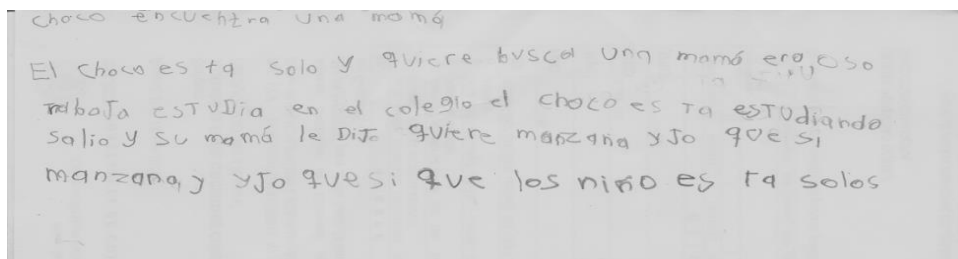 choco encuchtra una mamá
El choco es ta solo y quiere buscal una mamá era oso
trabaja ESTUDia en el colegio el choco es Ta esTudiando
salio y su mamá le DiJo quiere manzana y Jo que si
manzana, y yJo que si que los niño es Ta solos